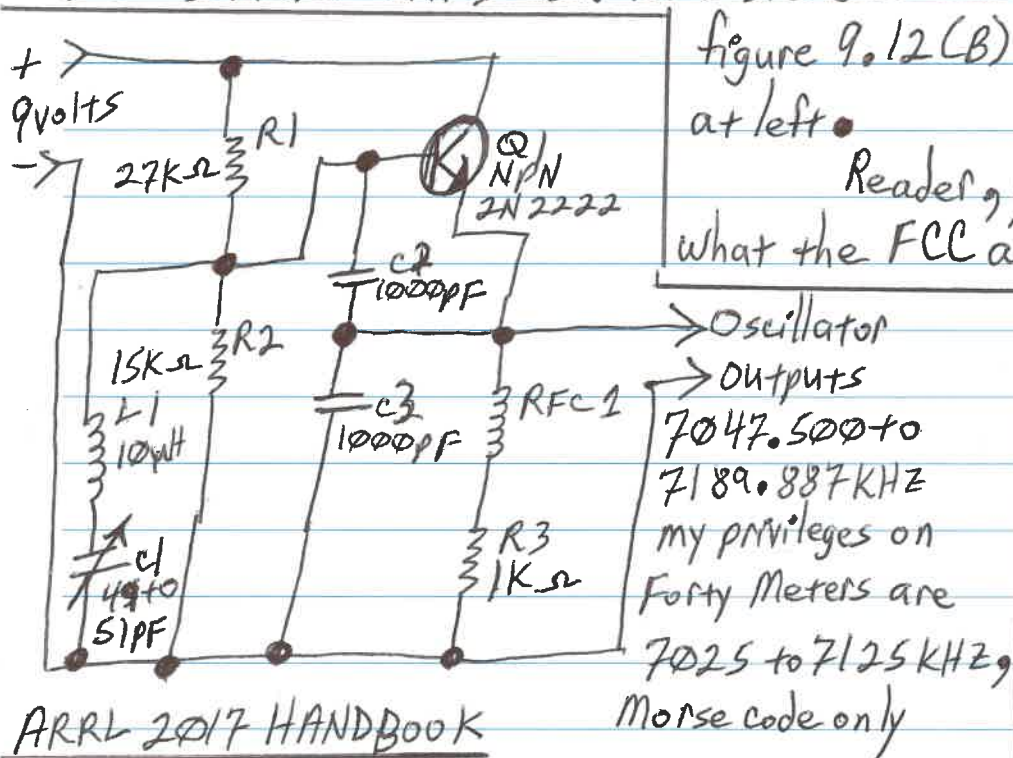 figure 9.12(B)
at left.
Reader,
what the FCC a
+
9volts
-
R1
27KΩ
Q1
NPN
2N2222
C2
1000pF
R2
15KΩ
L1
10µH
C3
1000pF
RFC1
R3
1KΩ
C1
49to
51PF
Oscillator
Outputs
7047.500to
7189.887KHZ
my privileges on
Forty Meters are
7025 to 7125KHZ,
Morse code only
ARRL 2017 HANDBOOK